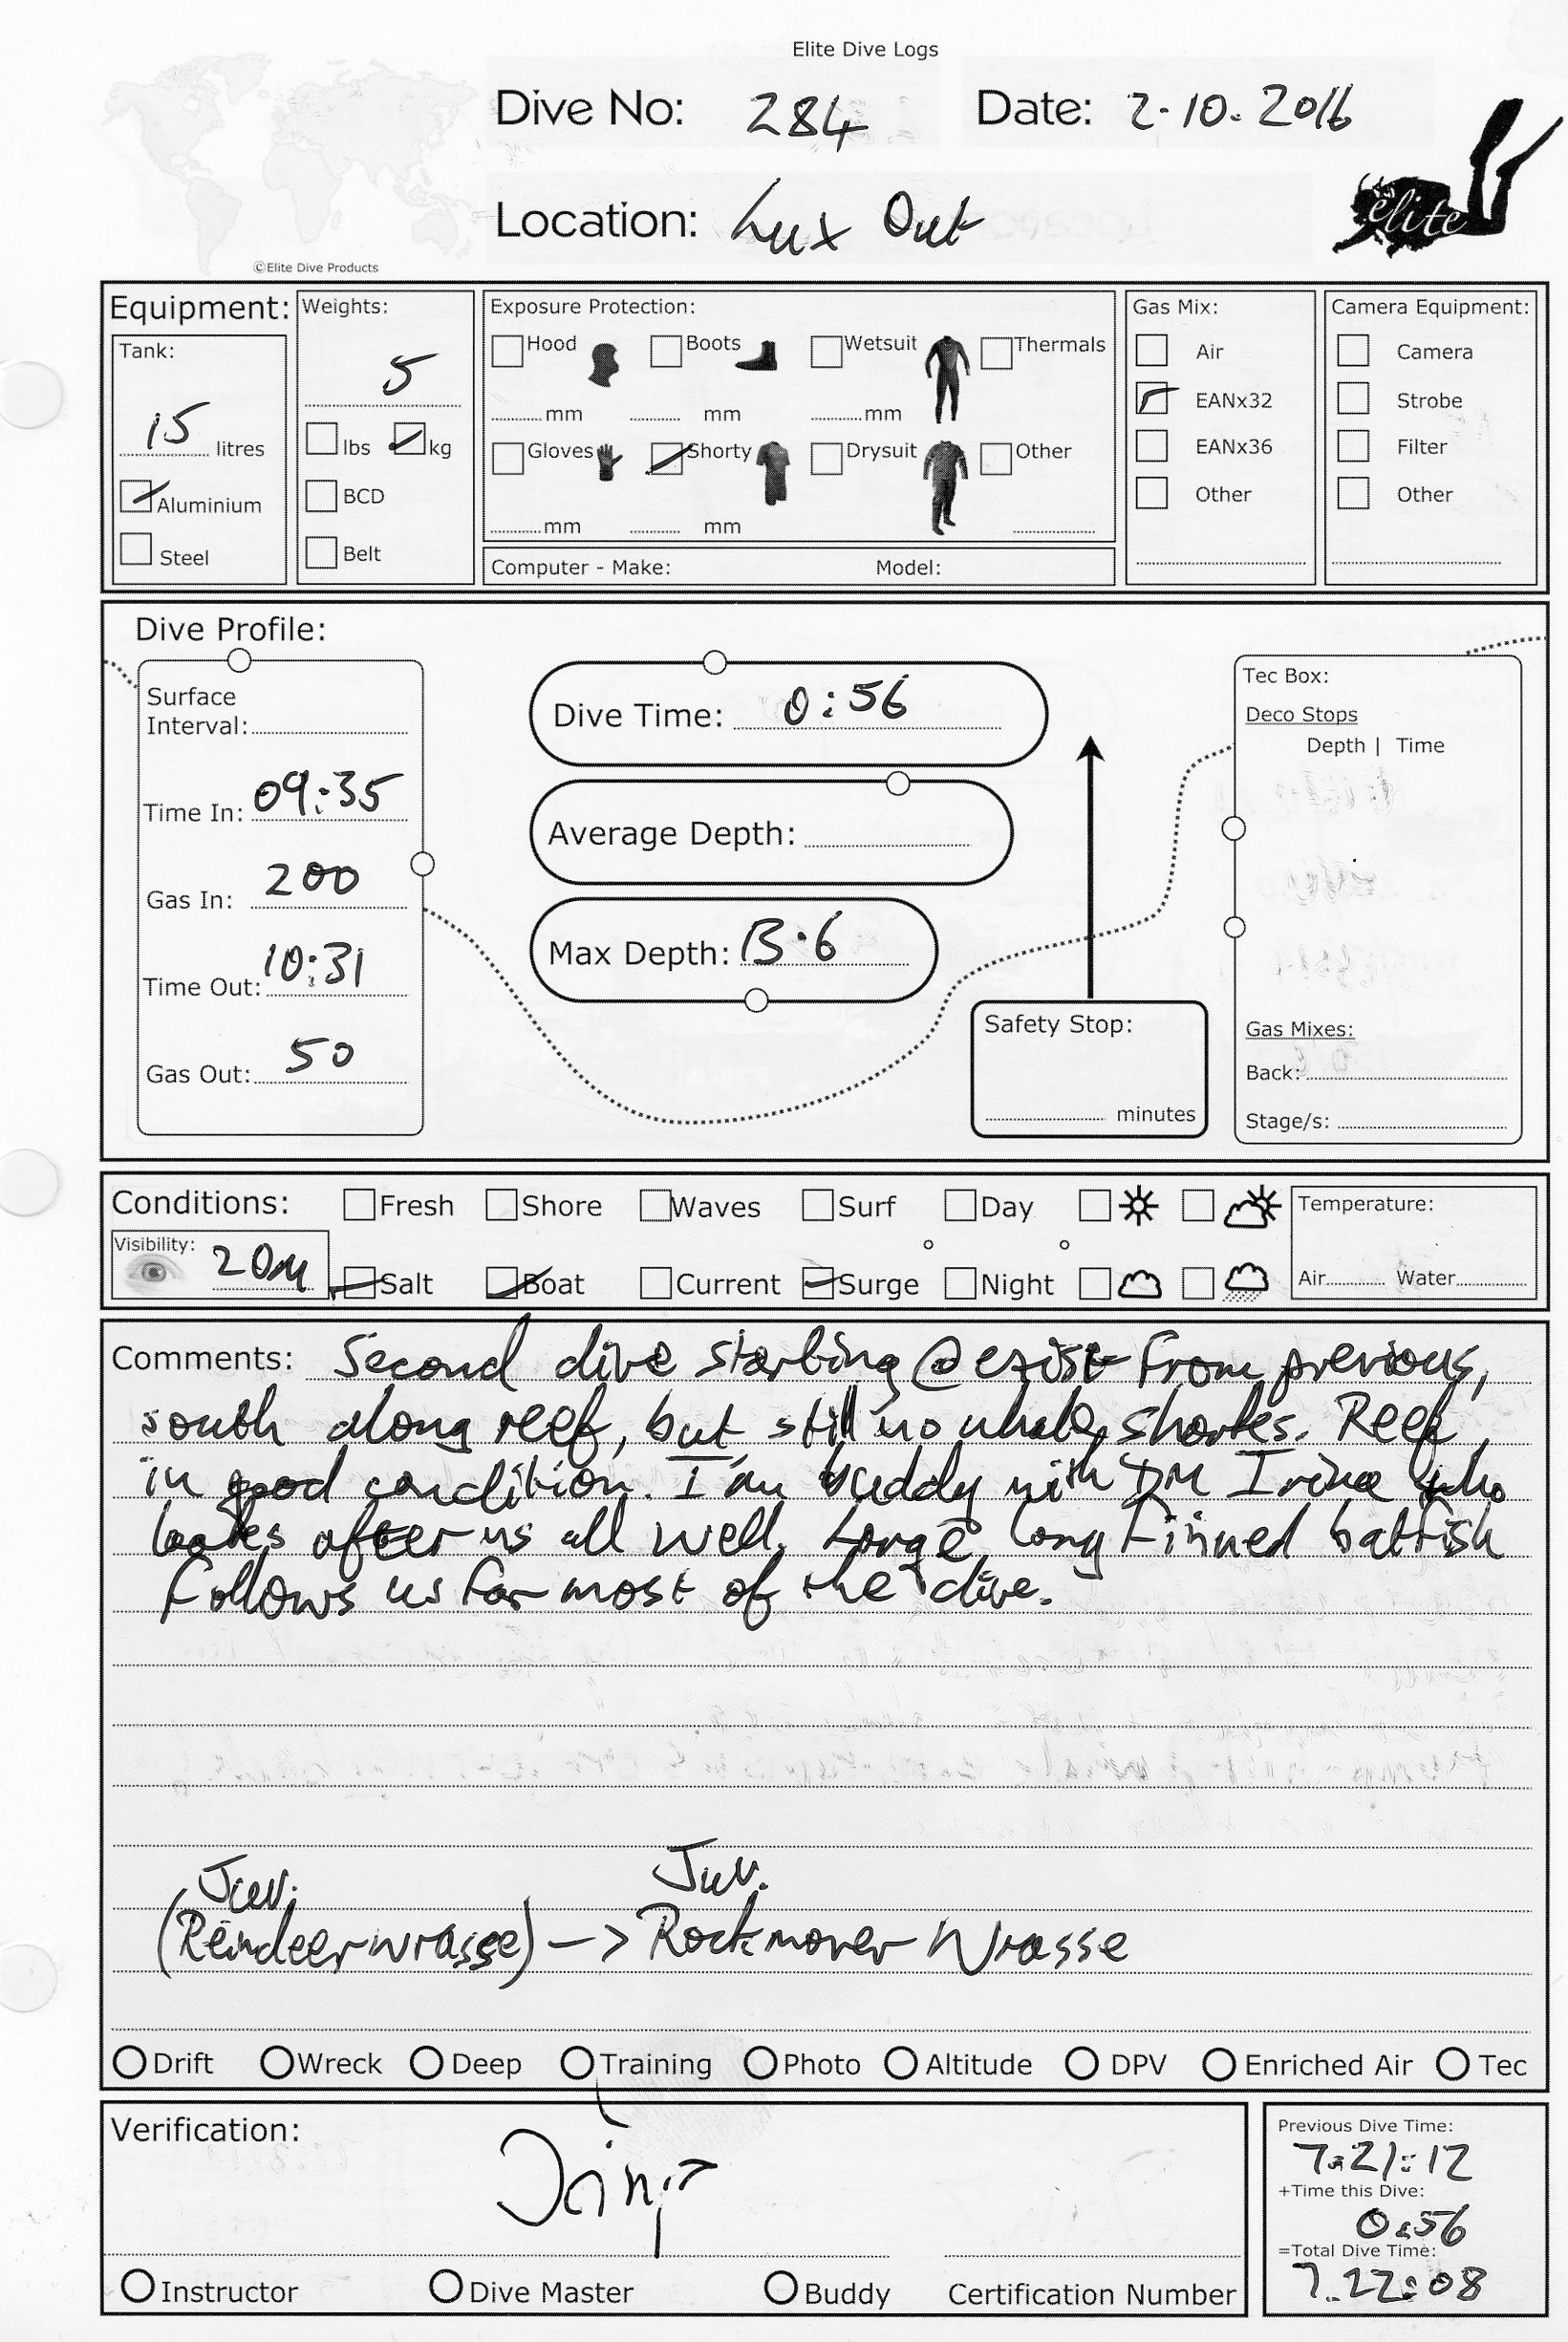 Elite Dive Logs
Dive No: 284 Date: 2.10.2016
Location: Lux Out
elite
©Elite Dive Products
Equipment: Weights: Exposure Protection: Gas Mix: Camera Equipment:
Tank: 5 Hood Boots Wetsuit Thermals Air Camera
mm mm mm EANx32 Strobe
15 litres lbs kg Gloves Shorty Drysuit Other EANx36 Filter
Aluminium BCD Other Other
mm mm
Steel Belt Computer - Make: Model:
Dive Profile:
Surface
Interval:
Time In: 09:35
Gas In: 200
Time Out: 10:31
Gas Out: 50
Dive Time: 0:56
Average Depth:
Max Depth: 13.6
Safety Stop:
minutes
Tec Box:
Deco Stops
Depth | Time
Gas Mixes:
Back:
Stage/s:
Conditions: Fresh Shore Waves Surf Day Temperature:
Visibility: 20m Salt Boat Current Surge Night Air Water
Comments: Second dive starting @ exist from previous,
south along reef, but still no whale sharks. Reef
in good condition. I am buddy with DM Irina who
looks after us all well. Large long finned batfish
follows us for most of the dive.
Juv. Juv.
(Reindeer wrasse) -> Rockmover Wrasse
Drift Wreck Deep Training Photo Altitude DPV Enriched Air Tec
Verification:
Instructor Dive Master Buddy Certification Number
Previous Dive Time:
7:21:12
+Time this Dive:
0:56
=Total Dive Time:
7:22:08